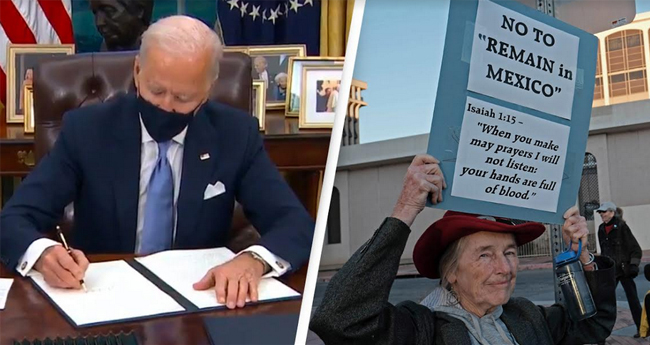 NO TO
"REMAIN in
MEXICO"
Isaiah 1:15 –
"When you make
may prayers I will
not listen:
your hands are full
of blood."